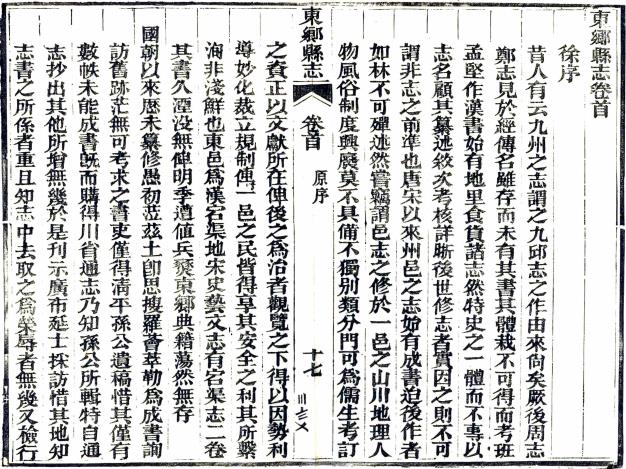 東鄉縣志卷首
徐序
昔人有云九州之志謂之九邱志之作由來尚矣厥後周志
鄭志見於經傳名雖存而未有其書其體栽不可得而考班
孟堅作漢書始有地里食貨諸志然特史之一體而不專以
志名顧其纂述敘次考核詳晰後世修志者實因之則不可
謂非志之前準也唐宋以來州邑之志始有成書迨後作者
如林不可殫述然嘗竊謂邑志之修於一邑之山川地理人
物風俗制度興廢莫不具備不獨別類分門可為儒生考訂
東鄉縣志
卷首
原序
十七
之資正以文獻所在俾後之為治者觀覽之下得以因勢利
導妙化裁立規制俾一邑之民皆得享其安全之利其所繫
洵非淺鮮也東邑為漢宕渠地宋史藝文志有宕渠志二卷
其書久湮沒無傳明季遭値兵燹東鄉典籍蕩然無存
國朝以來歷未纂修愚初蒞茲土卽思搜羅薈萃勒為成書詢
訪舊跡茫無可考求之書吏僅得淸平孫公遺稿惜其僅有
數帙未能成書旣而購得川省通志乃知孫公所輯特自通
志抄出其他所增無幾於是刊示廣布延士採訪惜其地知
志書之所係者重且知志中去取之為榮辱者無幾又檢行